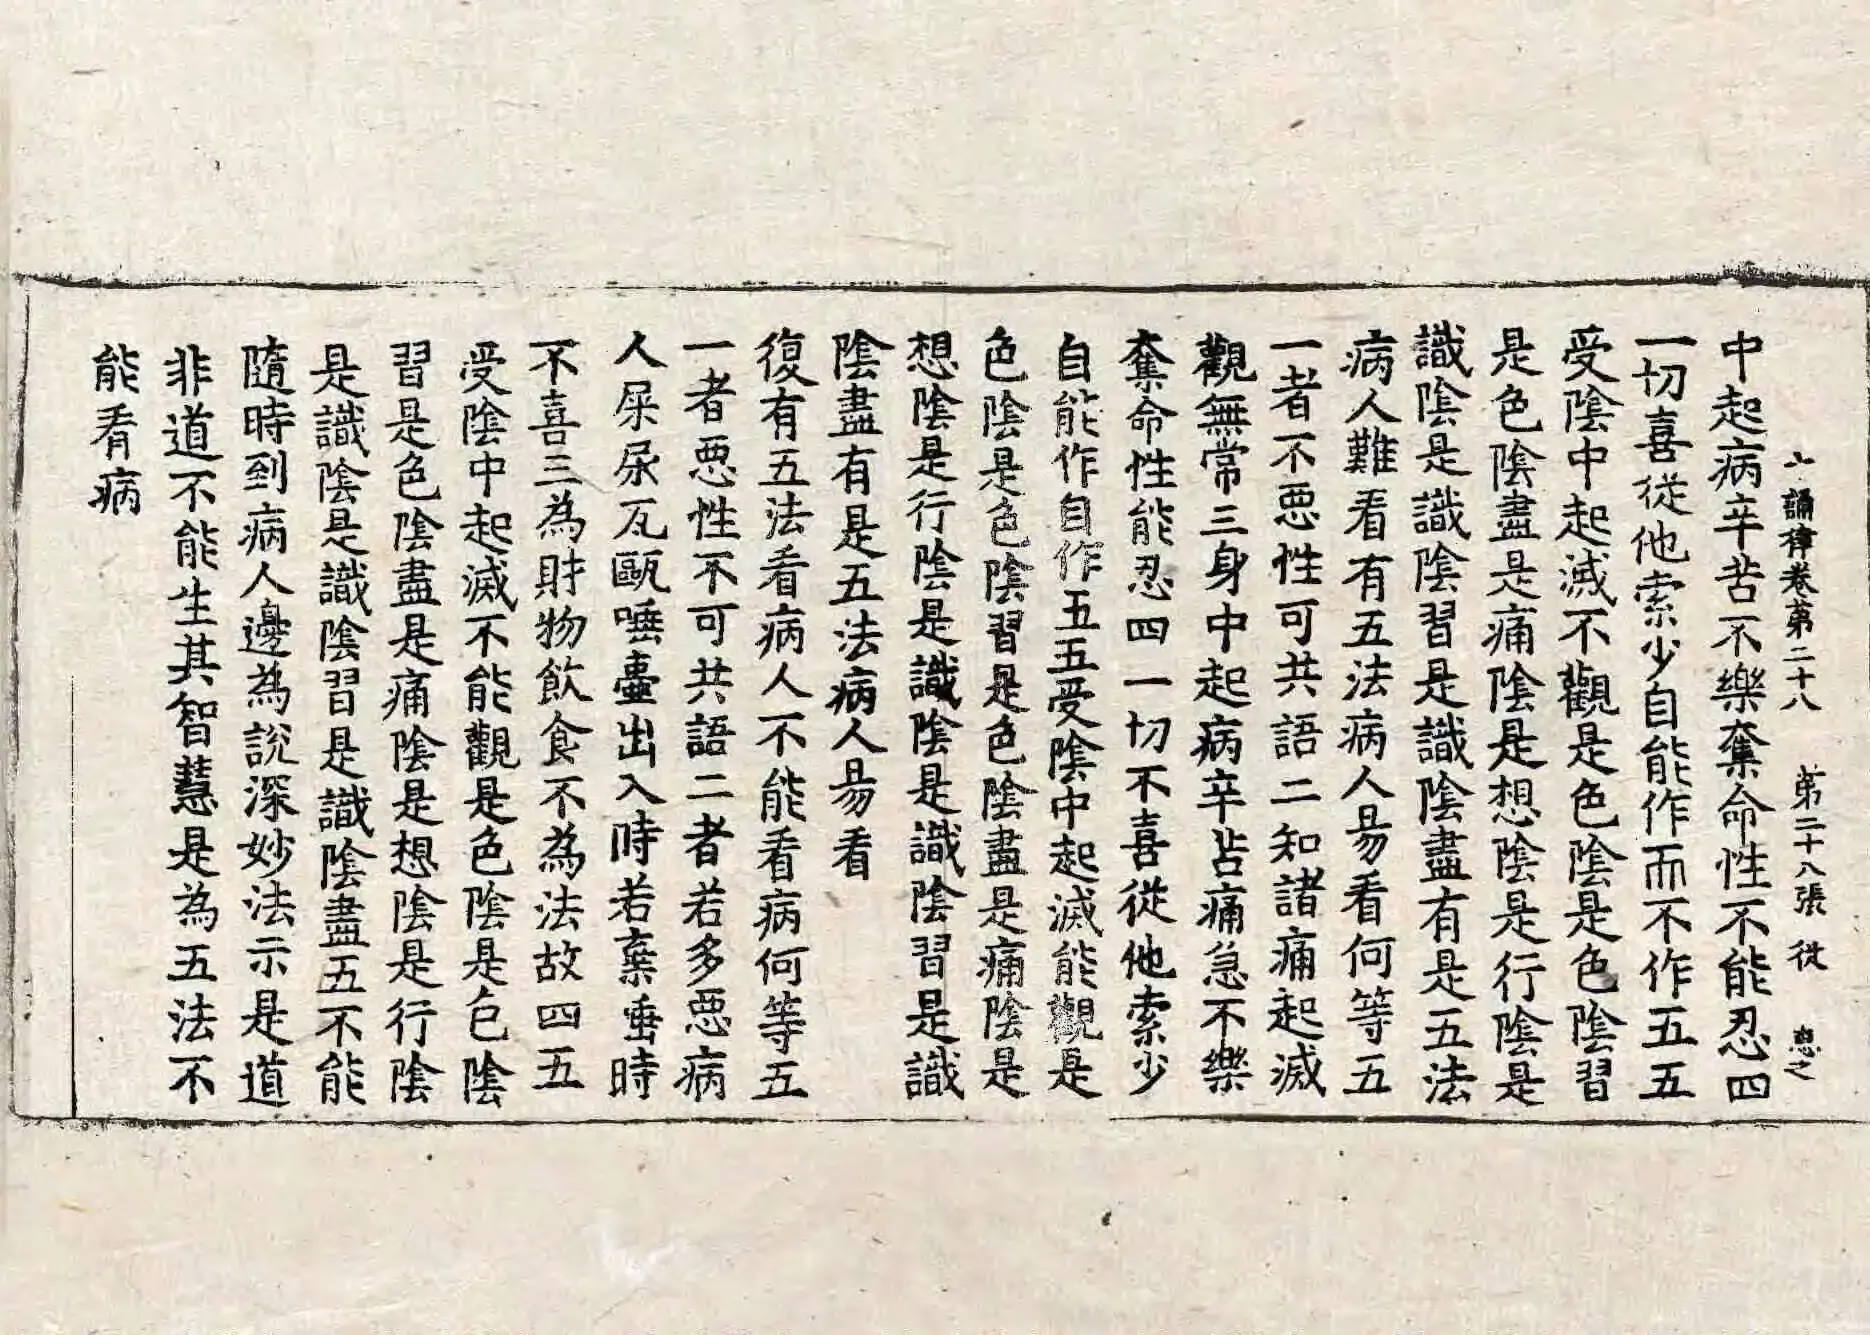 十誦律卷第二十八 第二十八張 從
中起病辛苦不樂奪命性不能忍四
一切喜從他索少自能作而不作五五
受陰中起滅不觀是色陰是色陰習
是色陰盡是痛陰是想陰是行陰是
識陰是識陰習是識陰盡有是五法
病人難看有五法病人易看何等五
一者不惡性可共語二知諸痛起滅
觀無常三身中起病辛苦痛急不樂
奪命性能忍四一切不喜從他索少
自能作自作五五受陰中起滅能觀是
色陰是色陰習是色陰盡是痛陰是
想陰是行陰是識陰是識陰習是識
陰盡有是五法病人易看
復有五法看病人不能看病何等五
一者惡性不可共語二者若多惡病
人屎尿瓦甌唾壺出入時若棄唾時
不喜三為財物飲食不為法故四五
受陰中起滅不能觀是色陰是色陰
習是色陰盡是痛陰是想陰是行陰
是識陰是識陰習是識陰盡五不能
隨時到病人邊為說深妙法示是道
非道不能生其智慧是為五法不
能看病